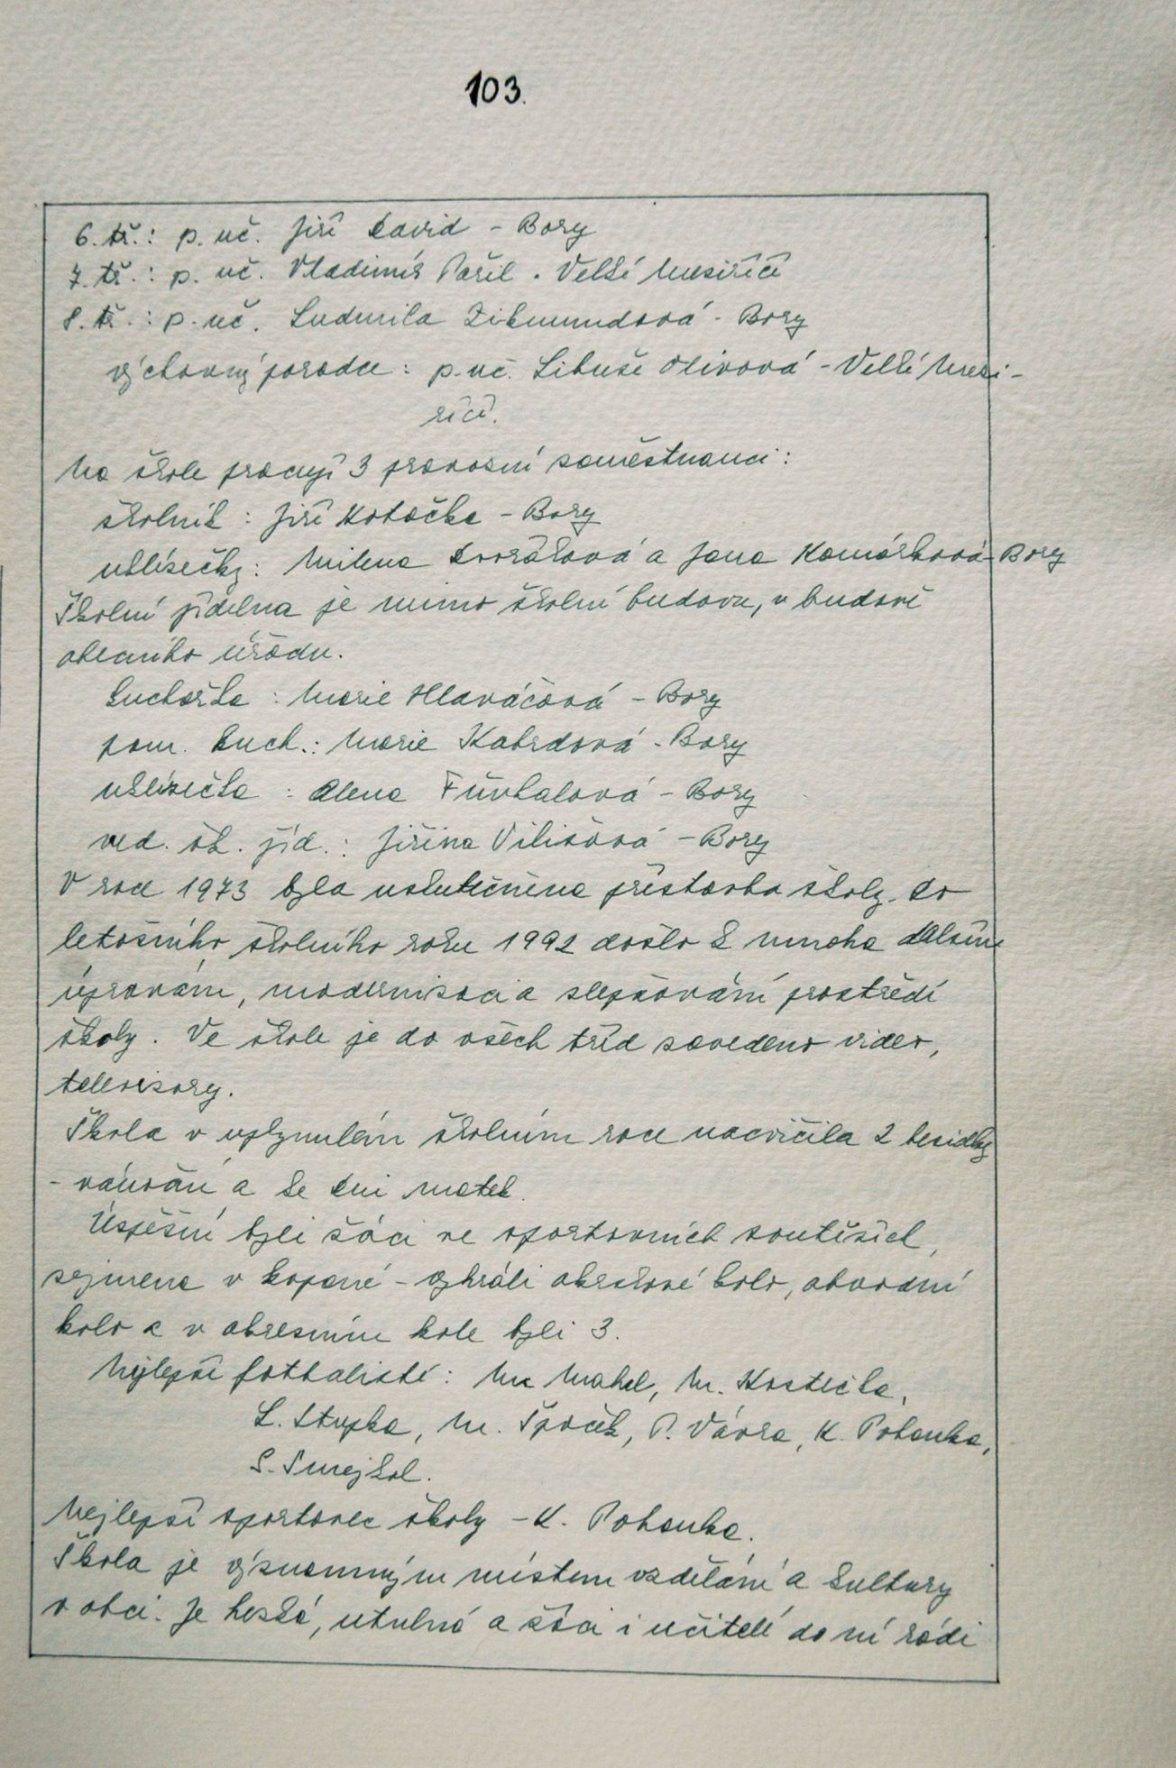 103.
6. tř.: p. uč. Jiří David - Bory
7. tř.: p. uč. Vladimír Pařil - Velké Meziříčí
8. tř.: p. uč. Ludmila Zikmundová - Bory
výchovný poradce: p. uč. Libuše Olivová - Velké Mezi-
říčí.
Na škole pracují 3 provozní zaměstnanci:
školník: Jiří Kotačka - Bory
uklízečky: Milena Dvořáková a Jana Komárková - Bory
Školní jídelna je mimo školní budovu, v budově
obecního úřadu.
kuchařka: Marie Hlaváčová - Bory
pom. kuch.: Marie Kabrdová - Bory
uklízečka: Alena Fůrkalová - Bory
ved. šk. jíd.: Jiřina Vilišová - Bory
V roce 1973 byla uskutečněna přístavba školy. Do
letošního školního roku 1992 došlo k mnoha dalším
úpravám, modernizaci a zlepšování prostředí
školy. Ve škole je do všech tříd zavedeno video,
televizory.
Škola v uplynulém školním roce nacvičila 2 besídky
- vánoční a ke dni matek.
Úspěšní byli žáci ve sportovních soutěžích,
zejména v kopané - vyhráli okrskové kolo, obvodní
kolo a v okresním kole byli 3.
Nejlepší fotbalisté: M. Mahel, M. Kostečka,
L. Stupka, M. Špaček, P. Vávra, K. Pohanka,
S. Smejkal.
Nejlepší sportovec školy - K. Pohanka.
Škola je významným místem vzdělání a kultury
v obci. Je hezká, útulná a žáci i učitelé do ní rádi